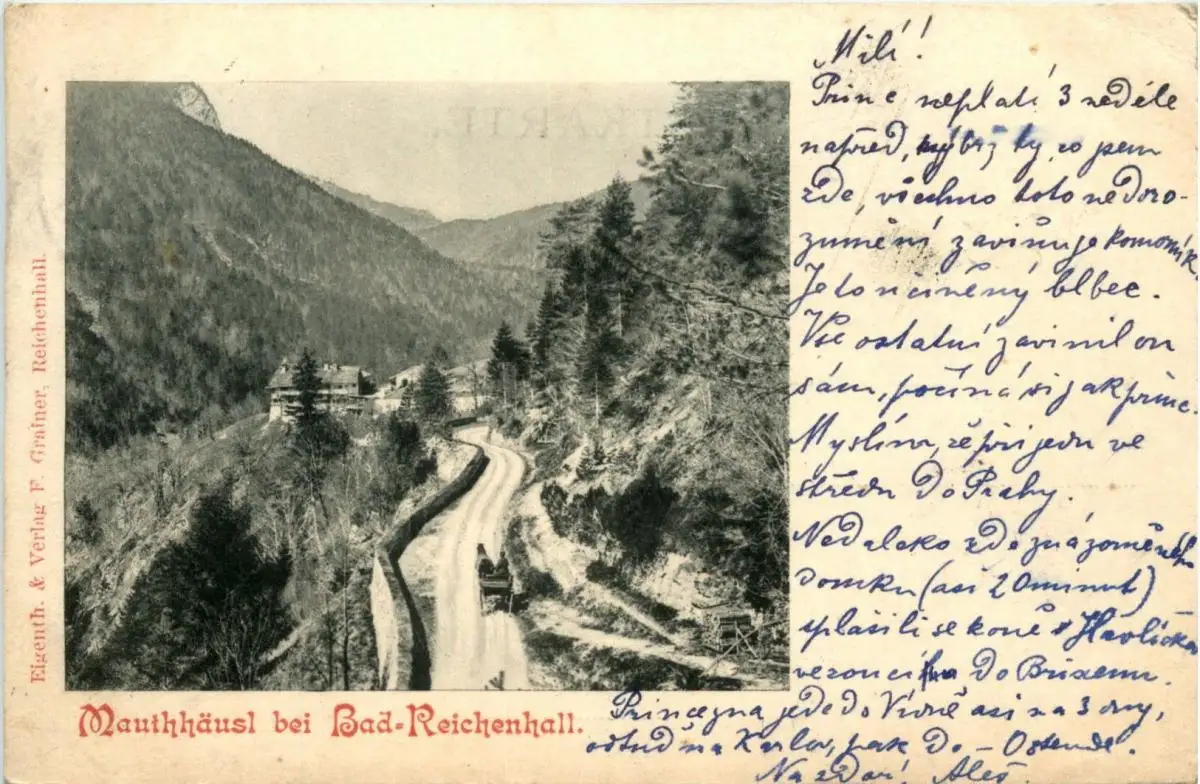 Milí!
Princ neplatí 3 neděle
napřed, nýbrž ty, co jsem
zde, všechno toto nedoro-
zumění zaviňuje komorník.
Je to učiněný blbec.
Vše ostatní zavinil on
sám, počíná si jak princ.
Myslím, že přijedu ve
středu do Prahy.
Nedaleko zde znázorněného
domku (asi 20 minut)
splašili se koně s Havlíčka
vezoucí do Brixenu.
Princezna jede do Vídně asi na 3 dny,
odtud na Karlov, pak do - Ostende.
Na zdar! Aleš.
Mauthhäusl bei Bad-Reichenhall.
Eigenth. & Verlag F. Grainer, Reichenhall.